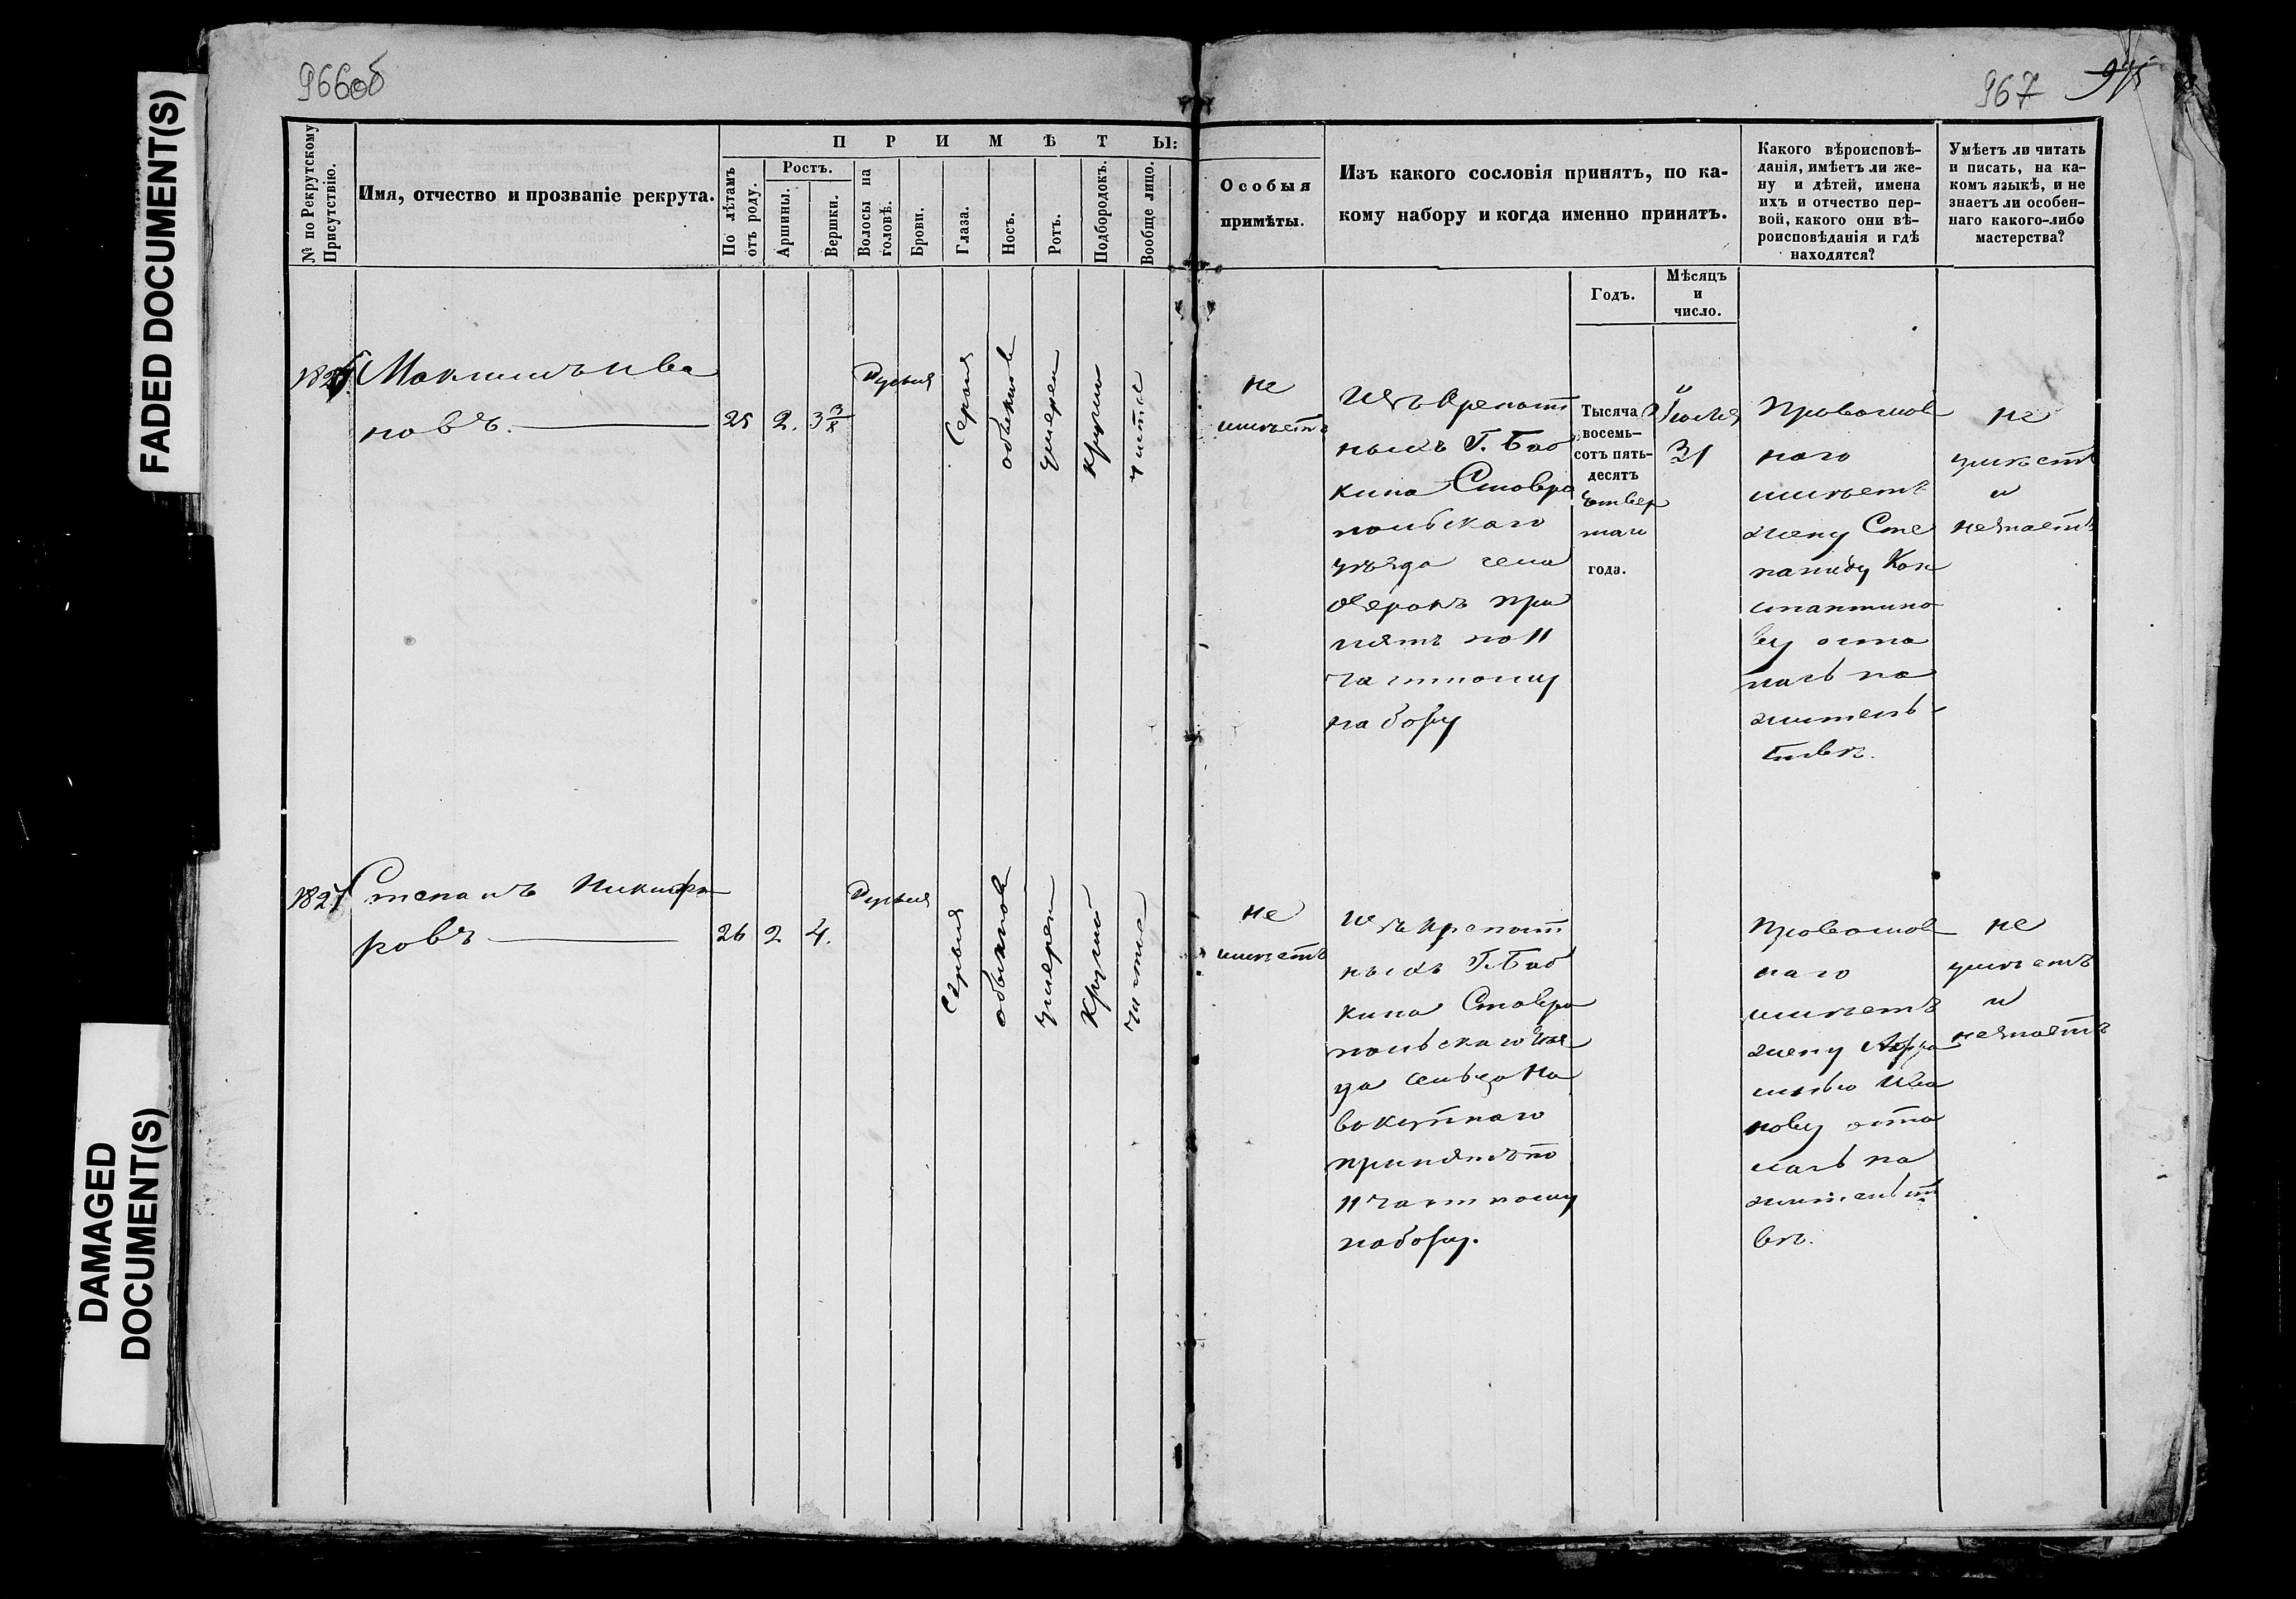 FADED DOCUMENT(S)
DAMAGED
DOCUMENT(S)
966об
967
№ по Рекрутскому
Присутствію.
Имя, отчество и прозваніе рекрута.
ПРИМѢТЫ:
По лѣтамъ
отъ роду.
Ростъ.
Аршины.
Вершки.
Волосы на
головѣ.
Брови.
Глаза.
Носъ.
Ротъ.
Подбородокъ.
Вообще лицо.
Особыя
примѣты.
Изъ какого сословія принятъ, по ка-
кому набору и когда именно принятъ.
Годъ.
Мѣсяцъ
и
число.
Какого вѣроисповѣ-
данія, имѣетъ ли же-
ну и дѣтей, имена
ихъ и отчество пер-
вой, какого они вѣ-
роисповѣданія и гдѣ
находятся?
Умѣетъ ли читать
и писать, на ка-
комъ языкѣ, и не
знаетъ ли особен-
наго какого-либо
мастерства?
Максимъ Ива
новъ.
25
2.
3 3/8
Русыя
Серыя
обыкнов
умерен
круглый
чистое
не
имѣетъ
Изъ крепост
ныхъ Г. Баб
кина Ставро
польскаго
уѣзда села
при
нятъ по 11
частному
набору
Тысяча
восемь-
сотъ пять-
десятъ
четвер
таго
года.
Іюля
31
Православ
наго
имѣетъ
жену Сте
паниду Кон
стантино
ву оста
лась на
житель
ствѣ.
не
умѣетъ
и
незнаетъ
1827
Степанъ Никифо
ровъ
26
2
4.
Русыя
Серыя
обыкнов
умерен
круглый
чистое
не
имѣетъ
Изъ крепост
ныхъ Г. Баб
кина Ставро
польскаго уѣз
да сельца Но
вокутнаго
принятъ по
11 частному
набору.
Православ
наго
имѣетъ
жену Афро
синью Ива
нову оста
лась на
жительст
вѣ.
не
умѣетъ
и
незнаетъ